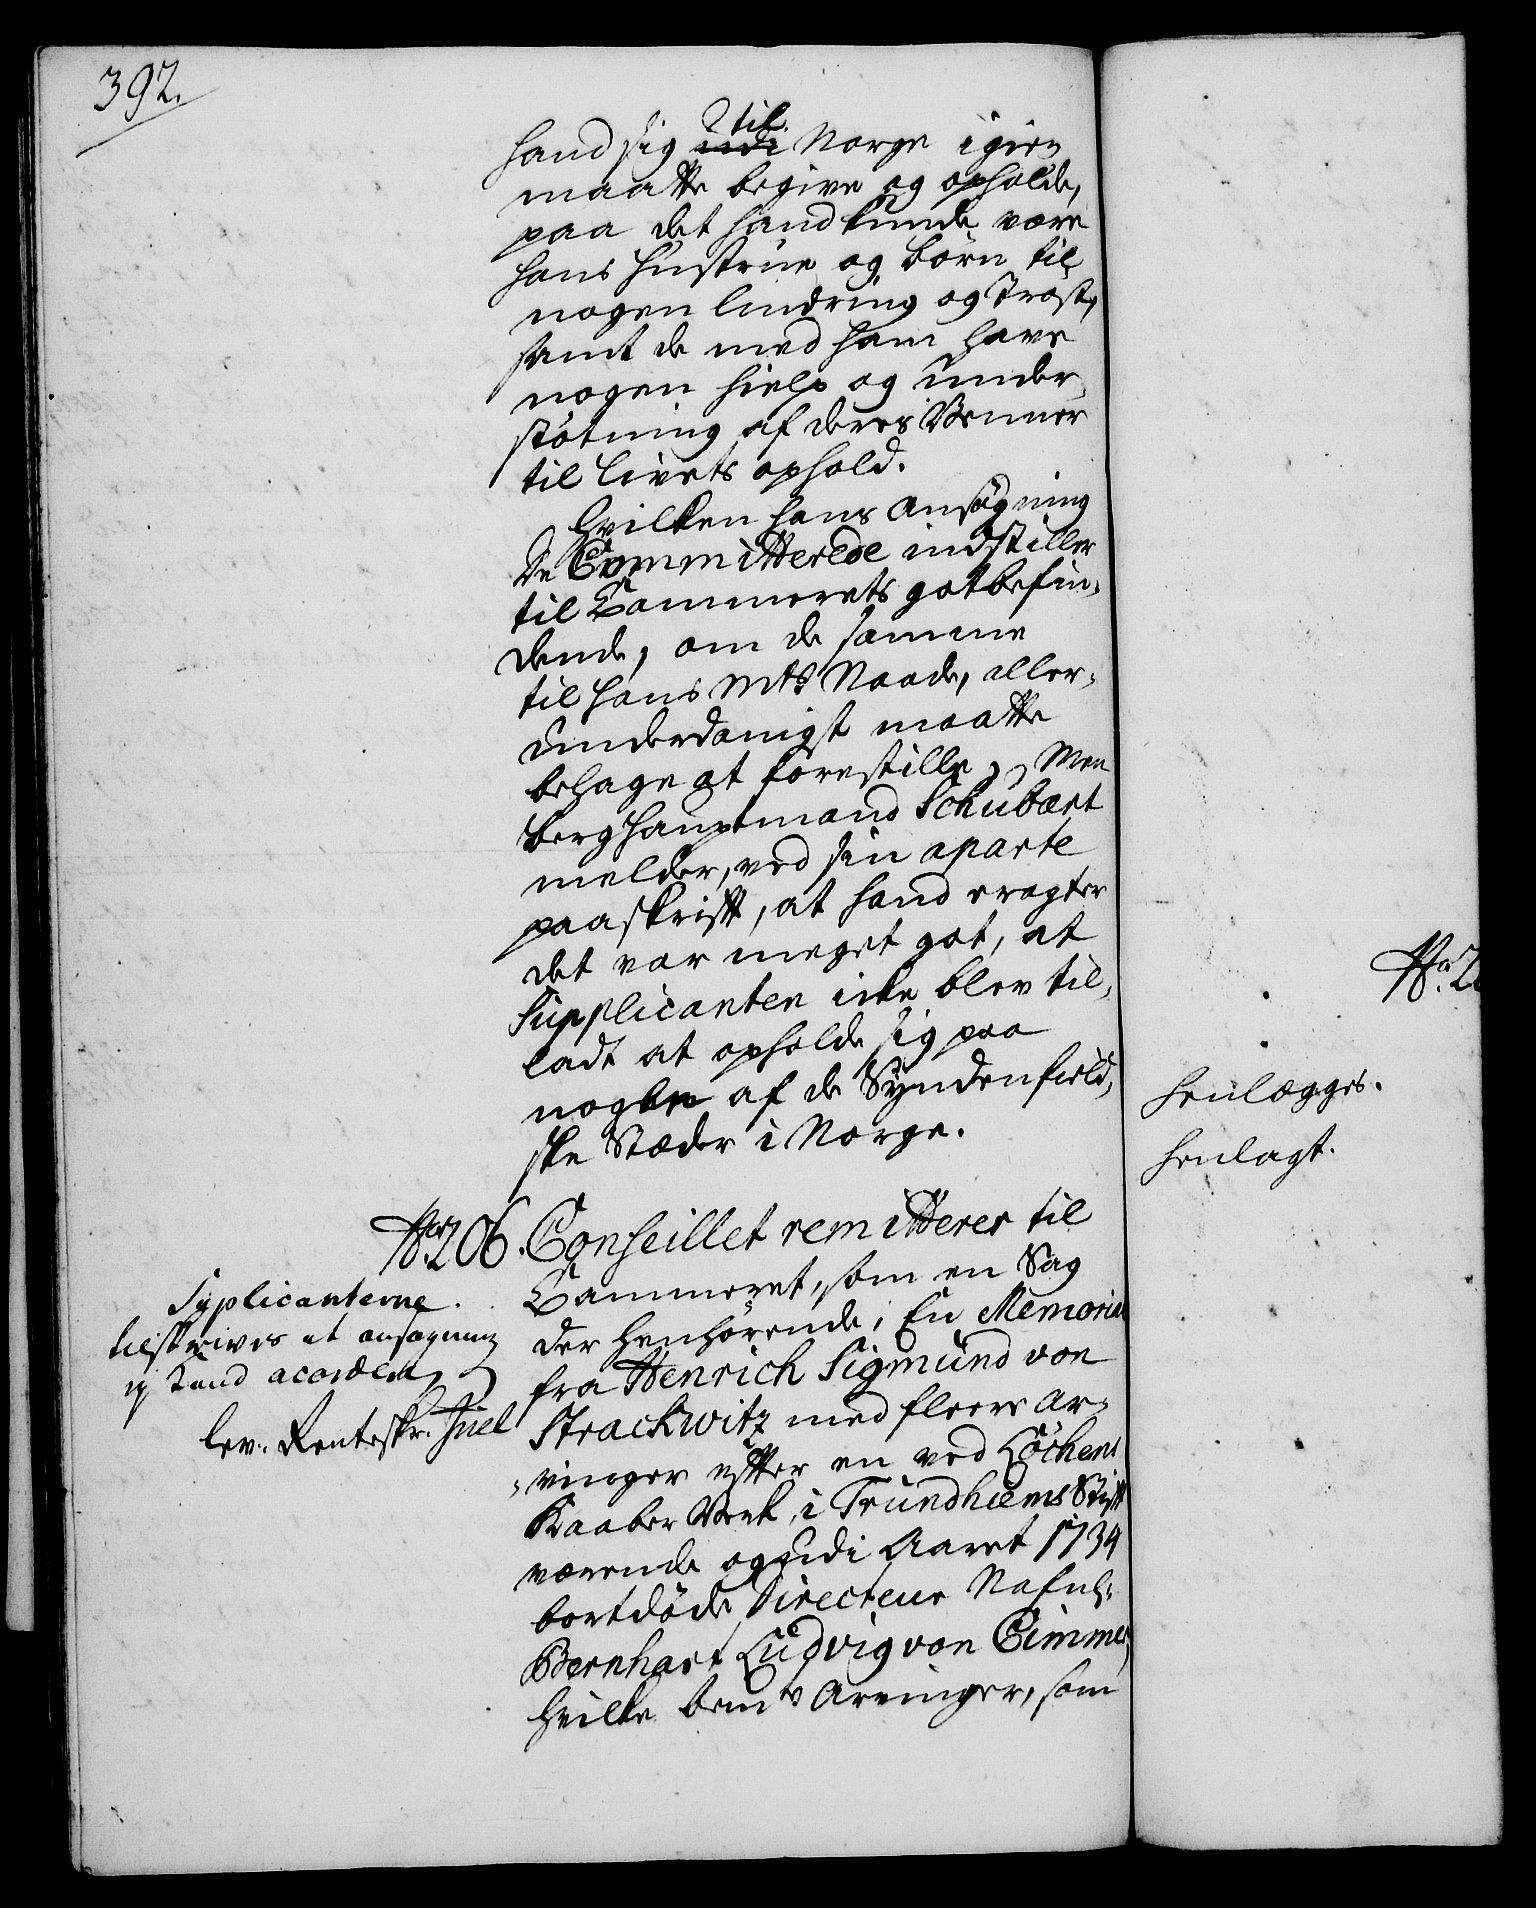 392.
hand sig ~~udi~~ til Norge igien
maatte begive og opholde,
paa det hand kunde være
hans Hustrue og börn til
nogen lindring og Tröst,
samt de med ham have
nogen hielp og under
stötning af deres Venner
til livets ophold.
Hvilken hans ansögning
De Committerede indstiller
til Cammerets gotbefin-
dende, om de samme
til hans Mts Naade, aller-
underdanigst maatte
behage at forestille, Men
berghauptmand Schubært
melder, ved sin aparte
paaskrift, at hand eragter
det var meget got, at
Supplicanten icke blev til-
ladt at opholde sig paa
nogen af de Syndenfield-
ske Stæder i Norge.
No. 206. Conseillet remitterer til
Cammeret, som en Sag
der henhörende, En Memorial
fra Henrich Sigmund von
Strackwitz med fleere Ar-
vinger efter en ved Löckens
Kaaber Verk i Trundhiems Stift
værende og udi Aaret 1734
bortdöde Directeur Nafnl:
Bernhart Ludvig von Cimmer,
hvilke bemte Arvinger, som
Supplicanterne
tilskrives at ansögning
ej kand acorderes
lev. Renteskr. Juel
No. 2
Henlægges.
henlagt.